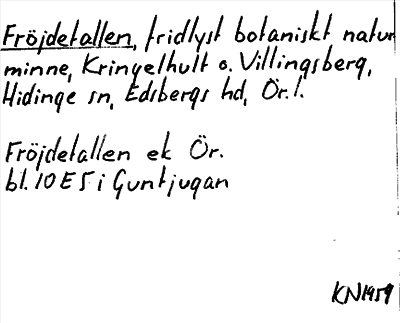 Fröjdetallen, fridlyst botaniskt natur
minne, Kringelhult o. Villingsberg,
Hidinge sn, Edsbergs hd, Ör. l.
Fröjdetallen ek Ör.
bl. 10 E 5 i Guntjugan
KN1959